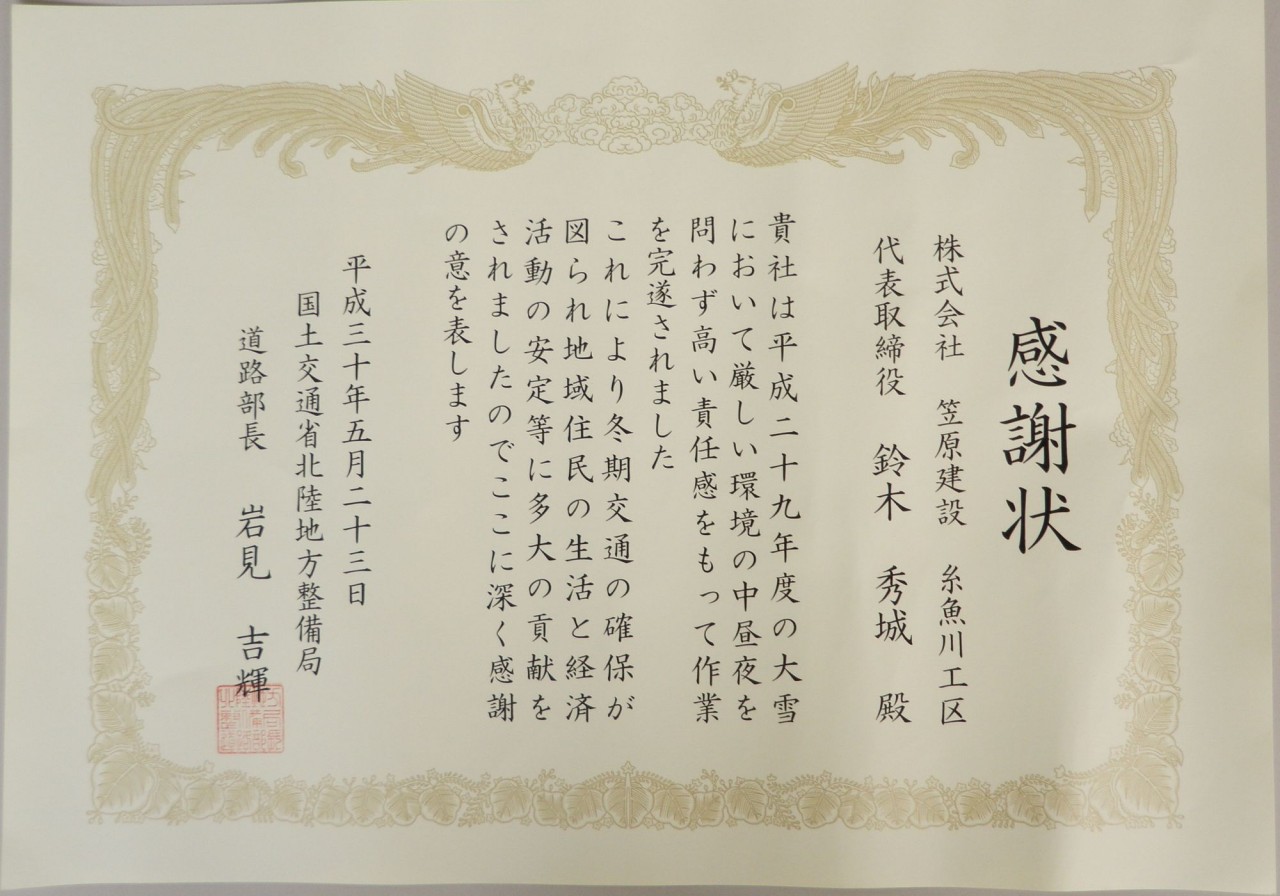 感謝状
株式会社 笠原建設 糸魚川工区
代表取締役 鈴木 秀城 殿
貴社は平成二十九年度の大雪
において厳しい環境の中昼夜を
問わず高い責任感をもって作業
を完遂されました
これにより冬期交通の確保が
図られ地域住民の生活と経済
活動の安定等に多大の貢献を
されましたのでここに深く感謝
の意を表します
平成三十年五月二十三日
国土交通省北陸地方整備局
道路部長 岩見 吉輝